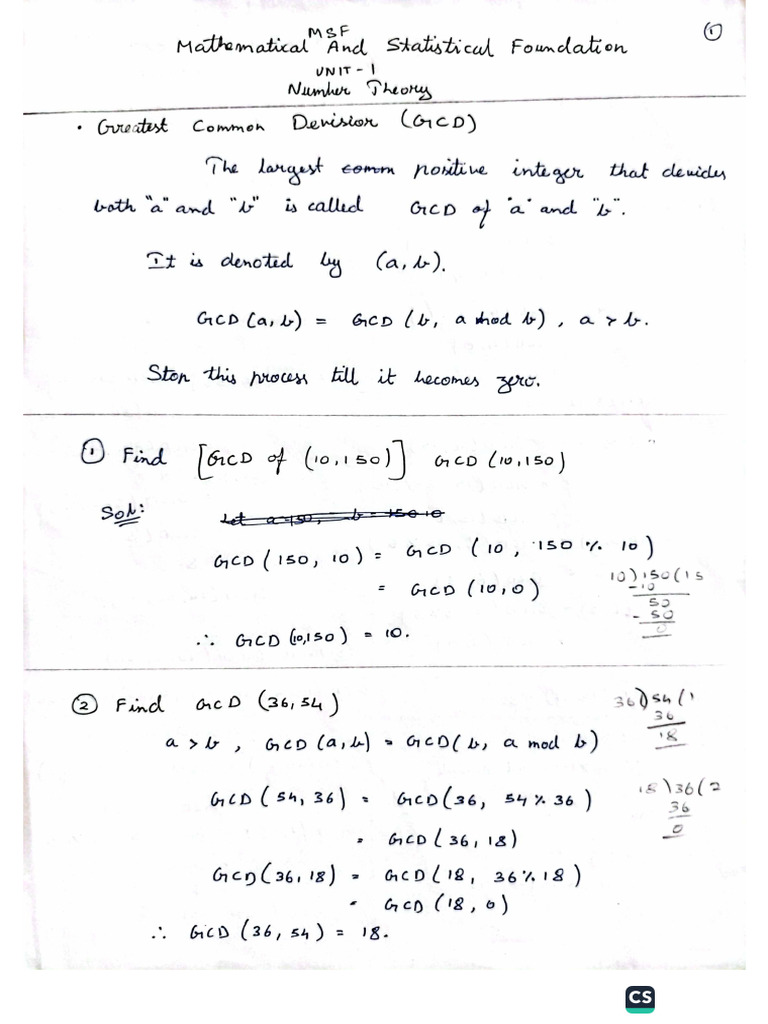 ①
MSF
Mathematical And Statistical Foundation
UNIT - 1
Number Theory
• Greatest Common Devisior (GCD)
The largest comm positive integer that devides
both "a" and "b" is called GCD of "a" and "b".
It is denoted by (a, b).
GCD (a, b) = GCD (b, a mod b), a > b.
Stop this process till it becomes zero.
① Find [GCD of (10,150)] GCD (10,150)
Soln:
GCD (150, 10) = GCD (10, 150 % 10)
= GCD (10,0)
10)150(15
-10
50
- 50
0
∴ GCD (10,150) = 10.
② Find GCD (36,54)
36)54(1
36
18
a > b, GCD (a,b) = GCD(b, a mod b)
GCD (54,36) = GCD(36, 54 % 36)
18)36(2
36
0
= GCD (36,18)
GCD(36,18) = GCD(18, 36 % 18)
= GCD (18, 0)
∴ GCD (36, 54) = 18.
CS